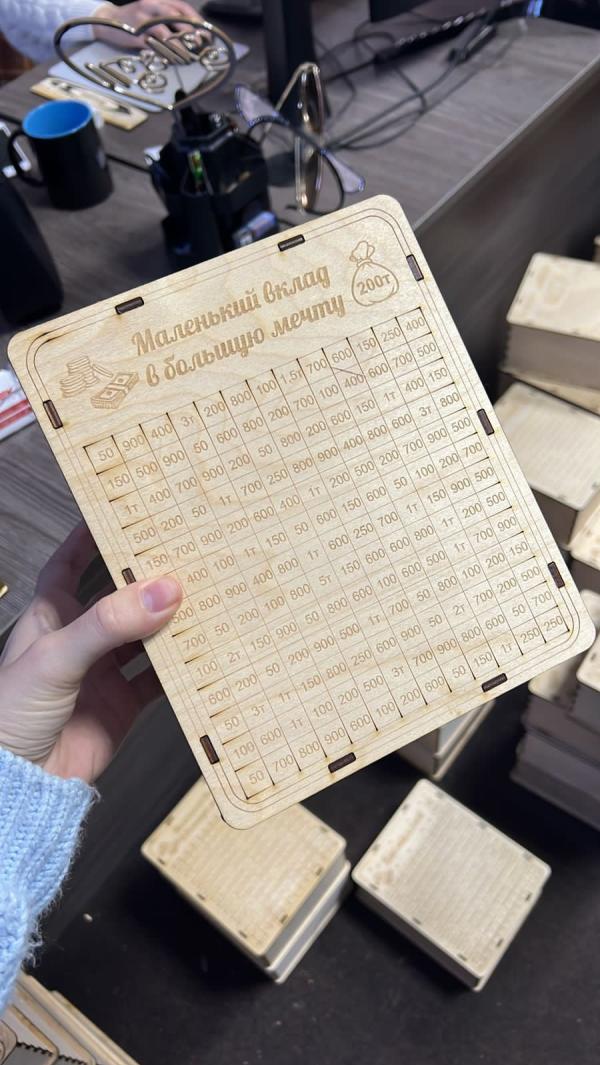 Маленький вклад
в большую мечту
200т
50 900 400 3т 200 800 100 1.5т 700 600 150 250 400
150 500 900 50 600 800 200 700 100 400 600 700 500
1т 400 700 900 200 50 800 200 600 150 1т 400 150
500 200 50 1т 700 250 800 900 400 800 600 3т 800
150 700 900 200 600 400 1т 200 500 200 700 900 500
400 100 1т 150 50 600 150 600 50 100 200 700
500 800 900 400 800 1т 600 250 700 1т 150 900 500
700 50 200 100 800 5т 150 600 600 800 1т 700 900
100 2т 150 900 50 800 100
600 200 50 200 900 500 1т 700 50
50 3т 1т 150 800 250 600 900 50 2т
100 600 1т 100 200 500 3т 700 900 500 600 50 700
50 700 800 900 600 100 200 600 50 150 1т 250 250